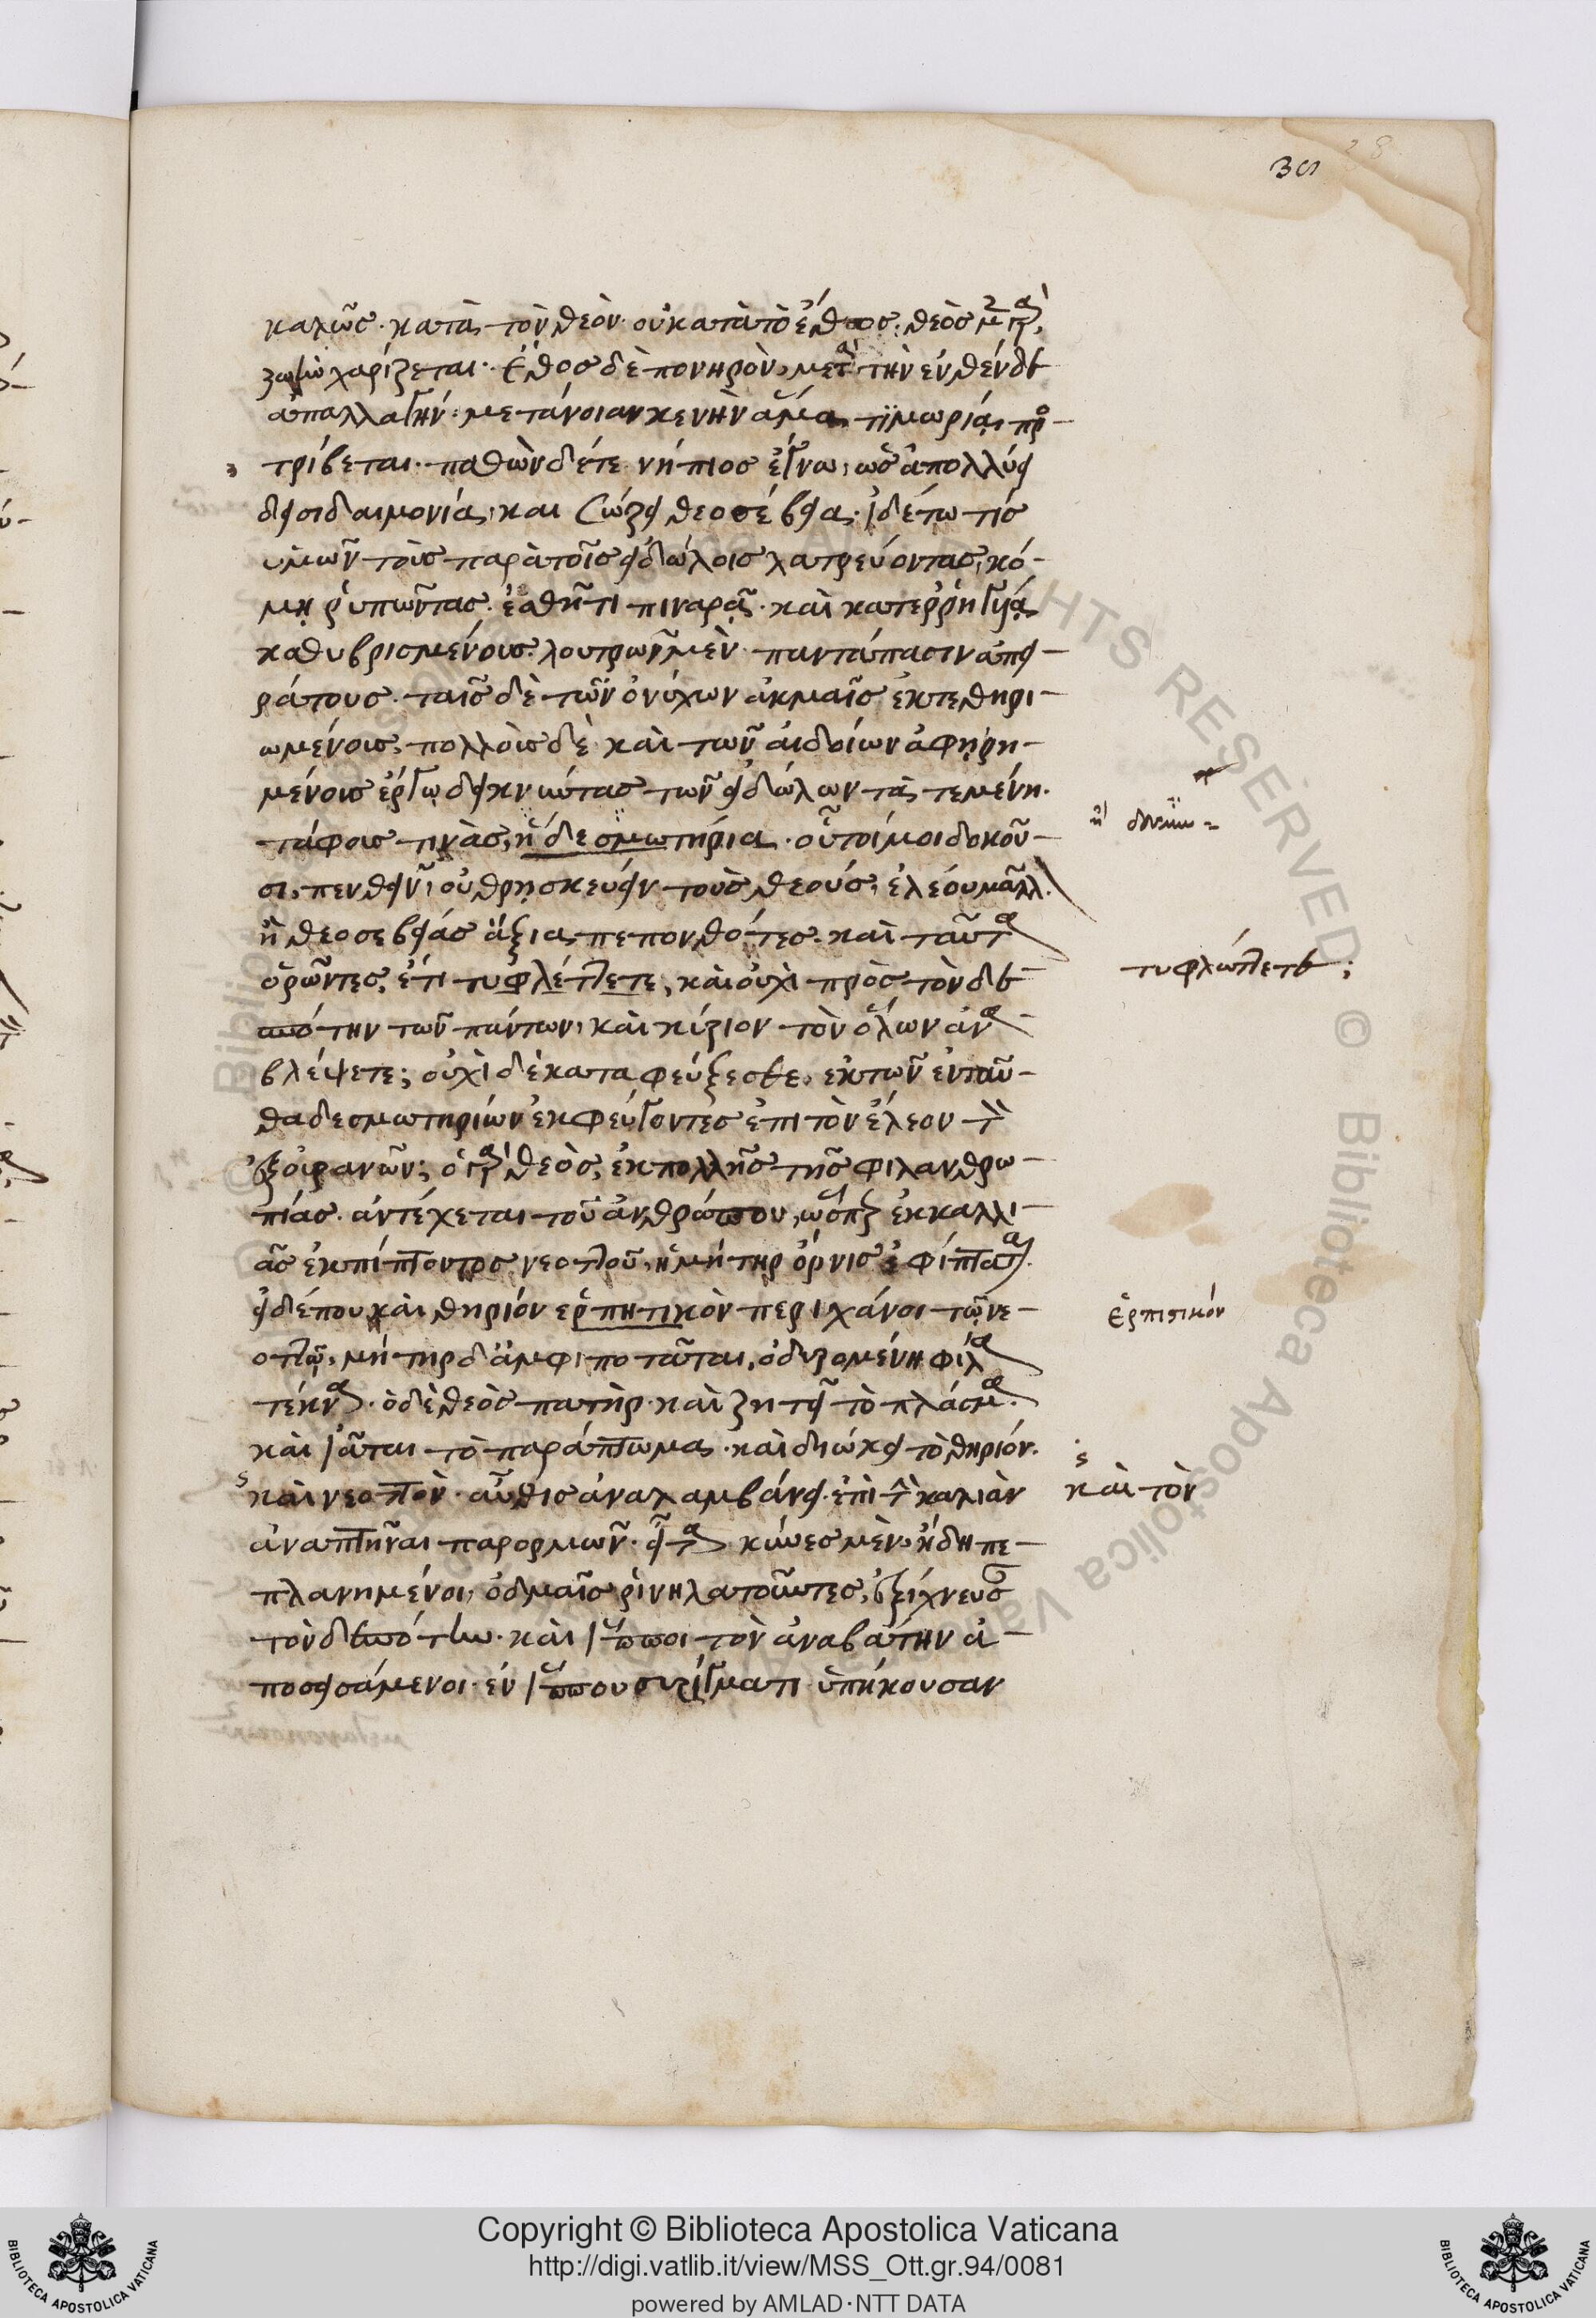 36
28
καλῶς. κατὰ τὸν θεὸν οὐ κατὰ τὸ ἔθος. θεὸς μὲν γὰρ,
ζωὴν χαρίζεται. ἔθος δὲ πονηρὸν, μετὰ τὴν ἐνθένδε
ἀπαλλαγήν. μετάνοιαν κενὴν ἅμα τιμωρίᾳ προ-
τρίβεται. παθὼν δέ τε νήπιος ἔγνω, ὡς ἀπολλύει
δεισιδαιμονία, καὶ σώζει θεοσέβεια. ἰδέτω τίς
ὑμῶν τοὺς παρὰ τοῖς εἰδώλοις λατρεύοντας, κό-
μῃ ῥυπῶντας. ἐσθῆτι πιναρᾷ. καὶ κατερρηγυίᾳ
καθυβρισμένους. λουτρῶν μὲν παντάπασιν ἀπει-
ράτους. ταῖς δὲ τῶν ὀνύχων ἀκμαῖς ἐκτεθηρι-
ωμένους, πολλοὺς δὲ καὶ τῶν αἰδοίων ἀφῃρη-
μένους ἔργῳ δεικνύντας τῶν εἰδώλων τὰ τεμένη.
τάφους τινὰς, ἢ δεσμωτήρια. οὗτοί μοι δοκοῦ-
σι, πενθεῖν, οὐ θρῃσκεύειν τοὺς θεοὺς, ἐλέου μᾶλλ.
ἢ θεοσεβείας ἄξια πεπονθότες. καὶ ταῦτα
ὁρῶντες, ἔτι τυφλέττετε, καὶ οὐχὶ πρὸς τὸν δε-
σπότην τῶν πάντων, καὶ κύριον τὸν ὅλων ἀνα
βλέψετε; οὐχὶ δὲ καταφεύξεσθε, ἐκ τῶν ἐνταῦ-
θα δεσμωτηρίων ἐκφεύγοντες ἐπὶ τὸν ἔλεον τὸν
ἐξ οὐρανῶν; ὁ γὰρ θεὸς, ἐκ πολλῆς τῆς φιλανθρω-
πίας. ἀντέχεται τοῦ ἀνθρώπου, ὥσπερ ἐκ καλλι-
ᾶς ἐκπίπτοντος νεοττοῦ, ἡ μήτηρ ὄρνις ἐφίπταται.
εἰ δέ που καὶ θηρίον ἑρπητικὸν περιχάνοι τῷ νε-
οττῷ, μήτηρ δ' ἀμφιποτᾶται, ὀδυρομένη φίλα
τέκνα. ὁ δὲ θεὸς πατὴρ καὶ ζητεῖ τὸ πλάσμα.
καὶ ἰᾶται τὸ παράπτωμα. καὶ διώκει τὸ θηρίον.
καὶ νεοττὸν. αὖθις ἀναλαμβάνει. ἐπὶ τὴν καλιὰν
ἀναπτῆναι παρορμῶν. εἶτα κύνες μὲν ἤδη πε-
πλανημένοι, ὀδμαῖς ῥινηλατοῦντες, ἐξίχνευσαν
τὸν δεσπότην. καὶ ἵπποι τὸν ἀναβάτην ἀ-
ποσεισάμενοι. ἑν ἵππου συρίγματι ὑπήκουσαν
τυφλώττετε;
ἑρπιστικόν
καὶ τὸν
Copyright © Biblioteca Apostolica Vaticana
http://digi.vatlib.it/view/MSS_Ott.gr.94/0081
powered by AMLAD·NTT DATA
BIBLIOTECA APOSTOLICA VATICANA
BIBLIOTECA APOSTOLICA VATICANA